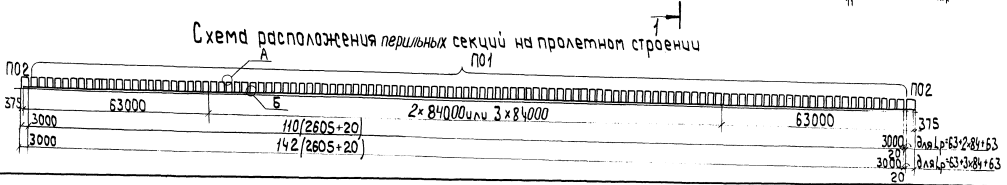 1
Схема расположения перильных секций на пролетном строении
ПО2
А
ПО1
ПО2
375
63000
Б
2×84000 или 3×84000
63000
375
3000
110(2605+20)
3000
20
для Lр=63+2×84+63
3000
142(2605+20)
3000
20
для Lр=63+3×84+63